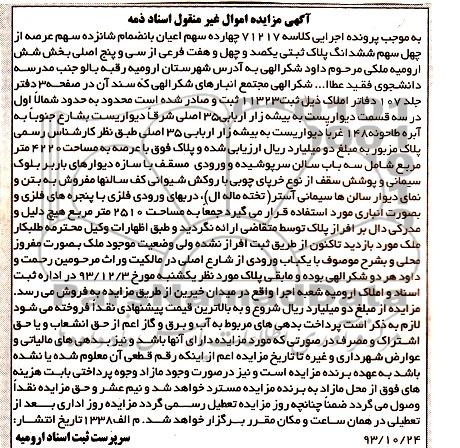 آگهی مزایده اموال غیر منقول اسناد ذمه
به موجب پرونده اجرایی کلاسه ۷۱۲۱۷ چهارده سهم اعیان بانضمام شانزده سهم عرصه از
چهل سهم ششدانگ پلاک ثبتی یکصد و چهل و هفت فرعی از سی و پنج اصلی بخش شش
ارومیه ملکی مرحوم داود شکرالهی به آدرس شهرستان ارومیه رقبه بالو جنب مدرسه
دانشجوی فقید عطاا... شکرالهی مجتمع انبارهای شکرالهی که سند آن در صفحه ۳ دفتر
جلد ۱۰۷ دفاتر املاک ذیل ثبت ۱۱۳۲۳ ثبت و صادر شده است محدود به حدود شمالاً اول
در سه قسمت دیواریست به بیشه زار اربابی ۳۵ اصلی شرقاً دیواریست بشارع جنوباً به
آبره طاحونه ۱۴۸ غرباً دیواریست به بیشه زار اربابی ۳۵ اصلی طبق نظر کارشناس رسمی
پلاک مزبور به مبلغ دو میلیارد ریال ارزیابی شده و پلاک فوق با عرصه به مساحت ۴۲۲۰ متر
مربع شامل سه باب سالن سرپوشیده و ورودی مسقف با سازه دیوارهای باربر بلوک
سیمانی و پوشش سقف از نوع خرپای چوبی با روکش شیوانی کف سالنها مفروش به بتن و
نمای دیوار سالن ها سیمانی آستر (تخته ماله ای)، دربهای ورودی فلزی با پنجره های فلزی و
بصورت انباری مورد استفاده قرار می گیرد جمعاً به مساحت ۲۵۱۰ متر مربع هیچ دلیل و
مدرکی دال بر افراز پلاک توسط متقاضی ارائه نگردید و طبق اظهارات وکیل محترمه طلبکار
ملک مورد بازدید تاکنون از طریق ثبت افراز نشده ولی وضعیت موجود ملک بصورت مفروز
محلی و بشرح موصوف با یکباب ورودی از شارع اصلی در مالکیت وراث مرحومین رحمت و
داود هر دو شکرالهی بوده و مابقی پلاک مورد نظر یکشنبه مورخ ۹۳/۱۲/۳ در اداره ثبت
اسناد و املاک ارومیه شعبه اجرا واقع در میدان خیرین از طریق مزایده به فروش می رسد.
مزایده از مبلغ دو میلیارد ریال شروع و به بالاترین قیمت پیشنهادی نقداً فروخته می شود
لازم به ذکر است پرداخت بدهی های مربوط به آب و برق و گاز اعم از حق انشعاب و یا حق
اشتراک و مصرف در صورتی که مورد مزایده دارای آنها باشد و نیز بدهی های مالیاتی و
عوارض شهرداری و غیره تا تاریخ مزایده اعم از اینکه رقم قطعی آن معلوم شده یا نشده
باشد به عهده برنده مزایده است و نیز در صورت وجود مازاد وجوه پرداختی بابت هزینه
های فوق از محل مازاد به برنده مزایده مسترد خواهد شد و نیم عشر و حق مزایده نقداً
وصول می گردد ضمناً چنانچه روز مزایده تعطیل رسمی گردد مزایده روز اداری بعد از
تعطیلی در همان ساعت و مکان مقرر برگزار خواهد شد. م الف ۱۳۳۸ تاریخ انتشار:
۹۳/۱۰/۲۴ سرپرست ثبت اسناد ارومیه